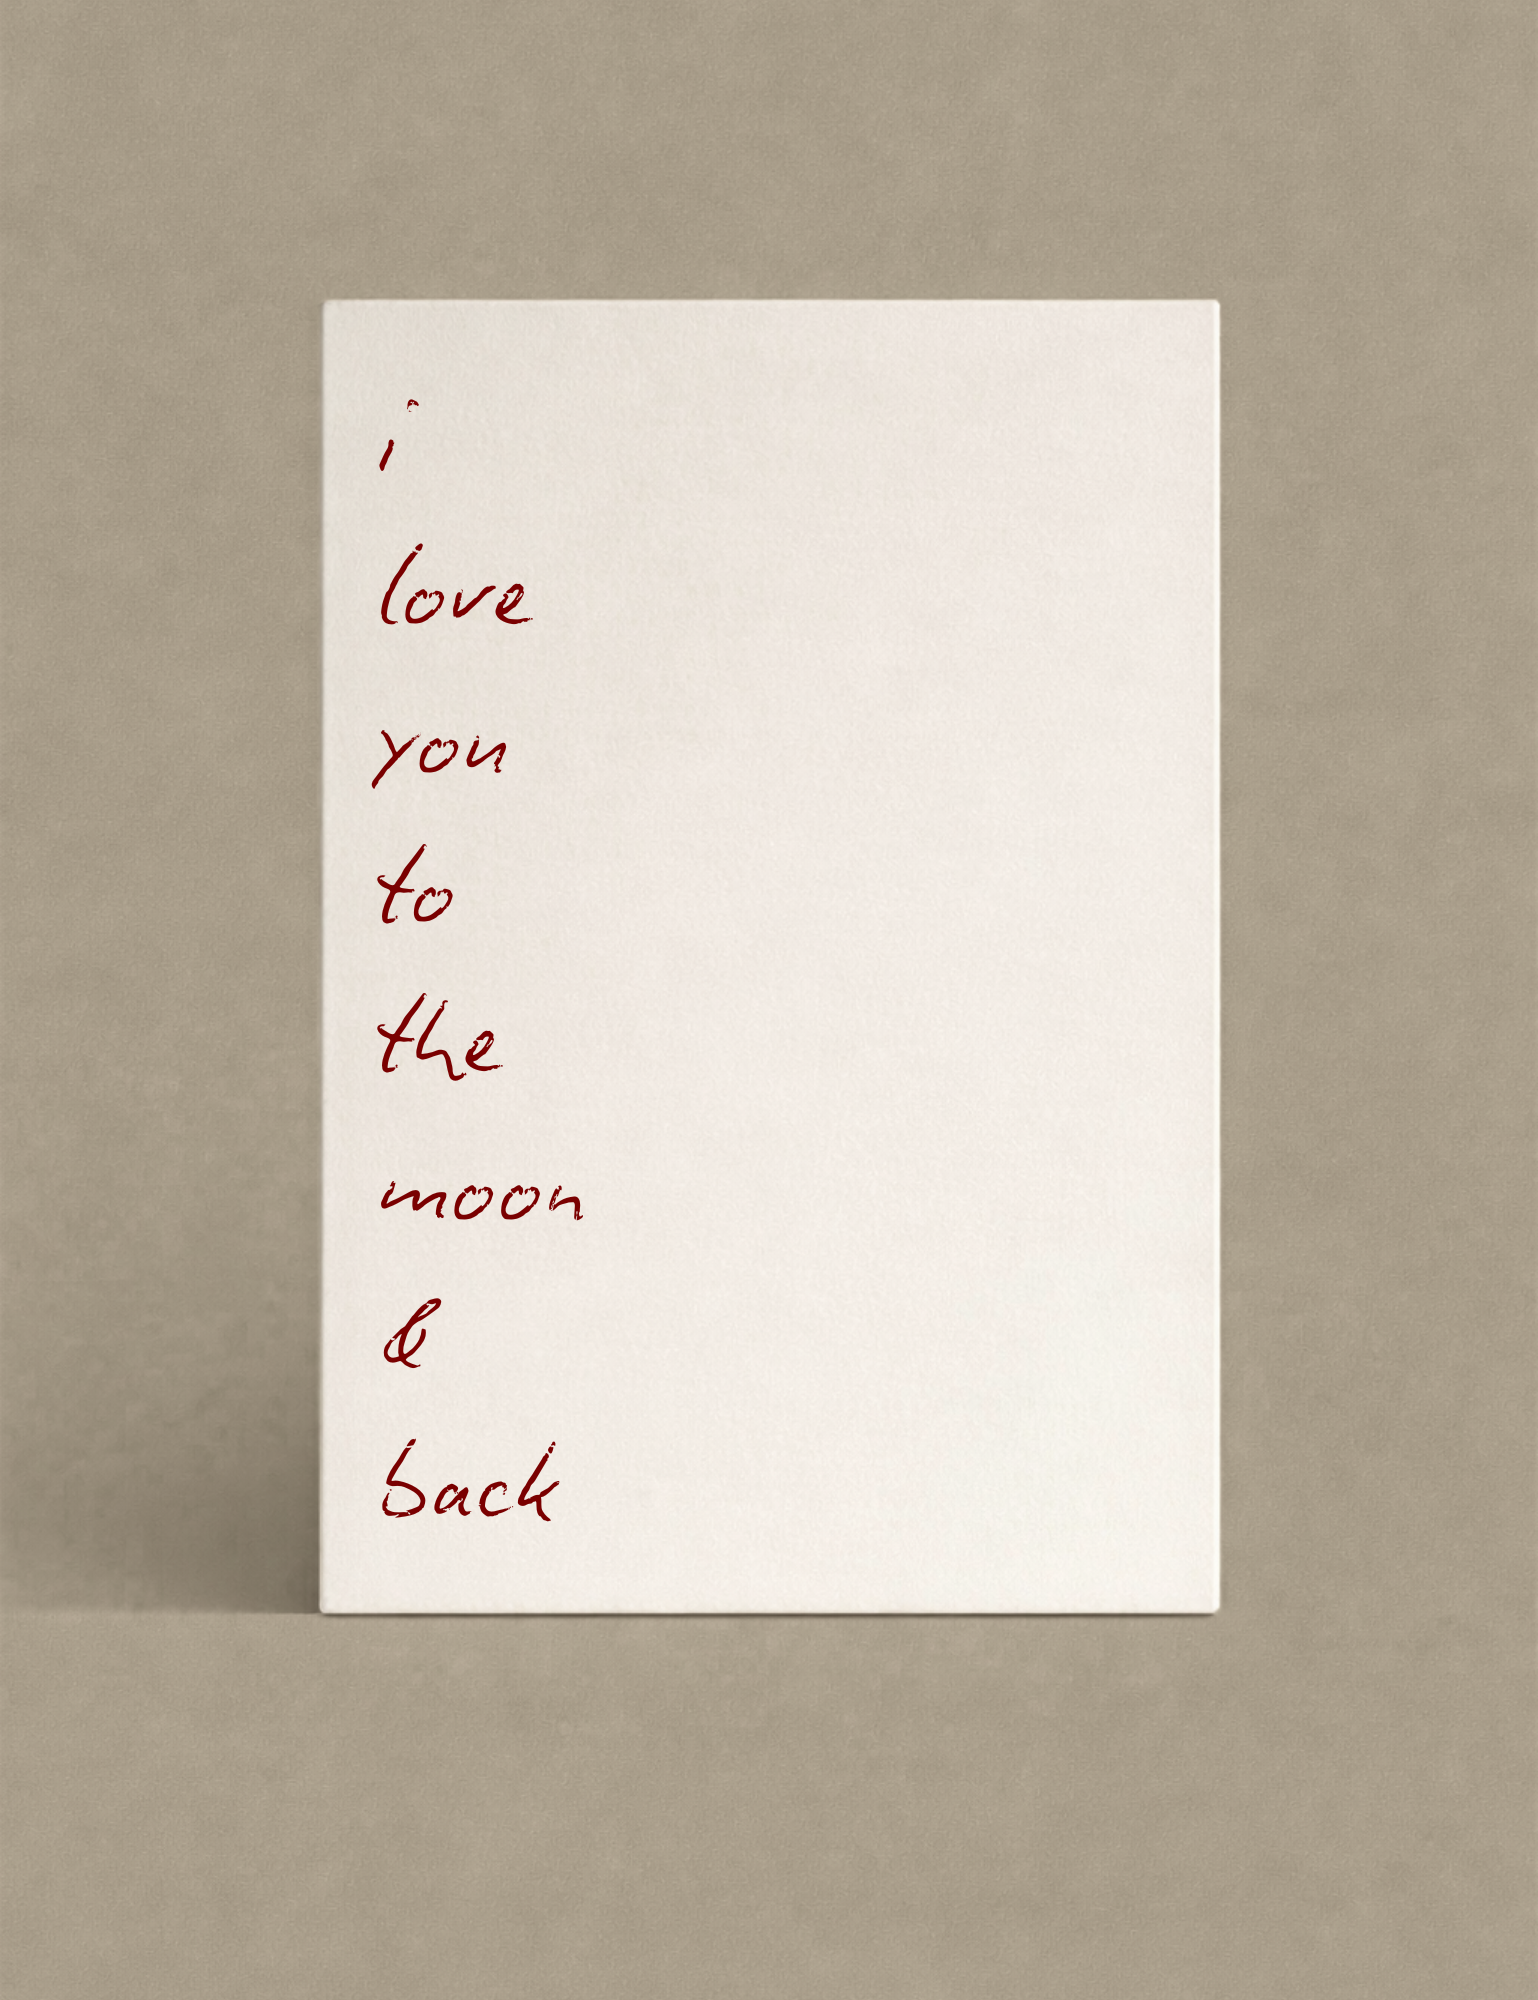 i
love
you
to
the
moon
&
back